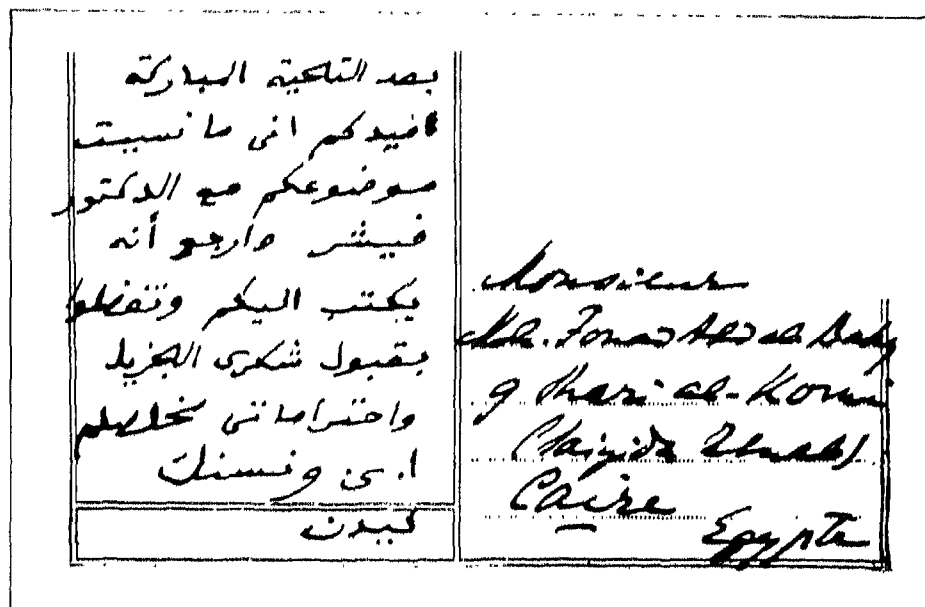 بعد التحية المباركة
افيدكم انى ما نسيت
موضوعكم مع الدكتور
فيشر وارجو أنه
يكتب اليكم وتتفضلوا
بقبول شكرى الجزيل
واحتراماتى مخلصكم
ا. ى ونسنك
ليدن
Monsieur
Md. Fouad Abd al-Baky
9 Shari al-
(Saiyida Zenab)
Caire
Egypte